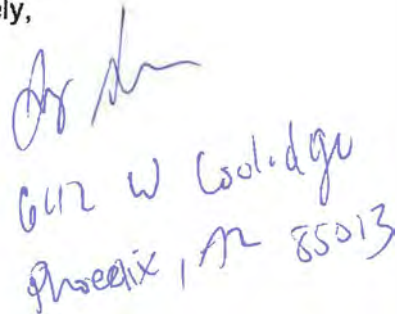 ely,
W Coolidge
Phoenix, AZ 85013